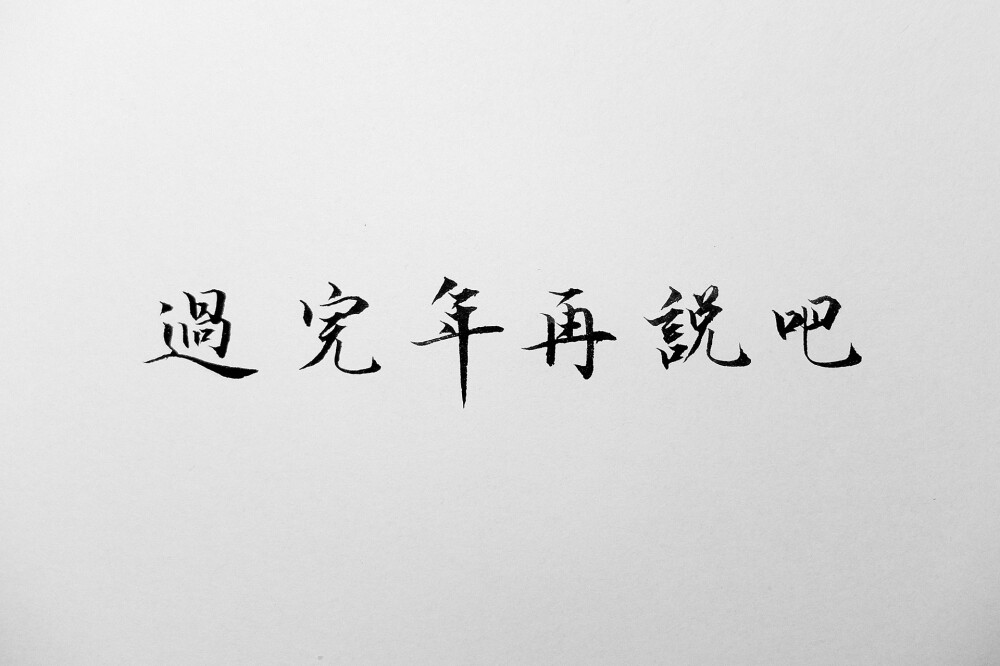 過完年再説吧